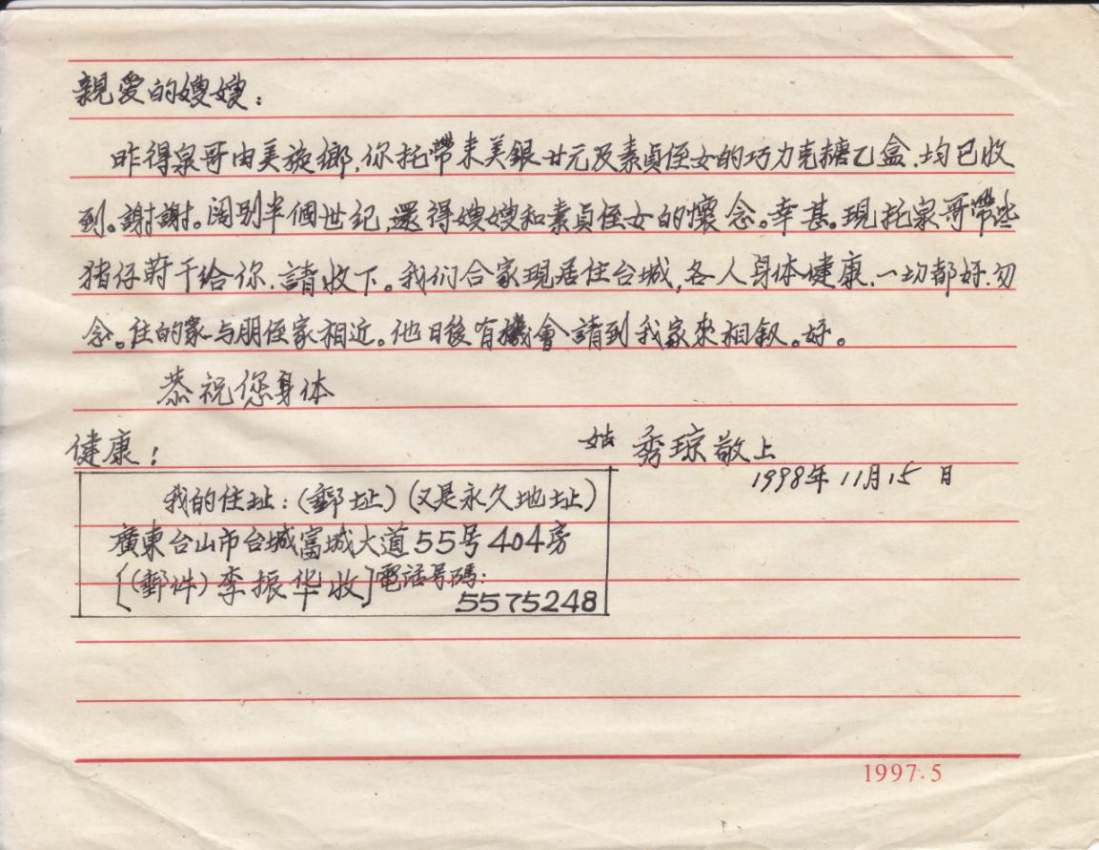 親爱的嫂嫂：
昨得泉哥由美旋鄉，你托帶来美銀廿元及素貞侄女的巧力克糖乙盒，均已收
到。謝謝。阔别半個世纪，還得嫂嫂和素貞侄女的懷念。幸甚。現托泉哥帶些
猪仔莳干给你，請收下。我们合家現居住台城，各人身体健康，一切都好，勿
念。住的家与朋侄家相近。他日後有機會請到我家來相叙。好。
恭祝您身体
健康！
姑 秀琼敬上
1998年11月15日
我的住址：（郵址）（又是永久地址）
廣東台山市台城富城大道55号404房
[（郵件）李振华收]電话号碼：
5575248
1997·5